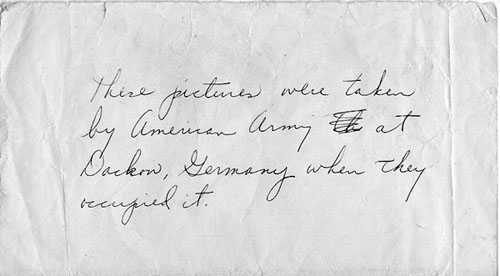 These pictures were taken
by American Army at
Dackow, Germany when they
occupied it.